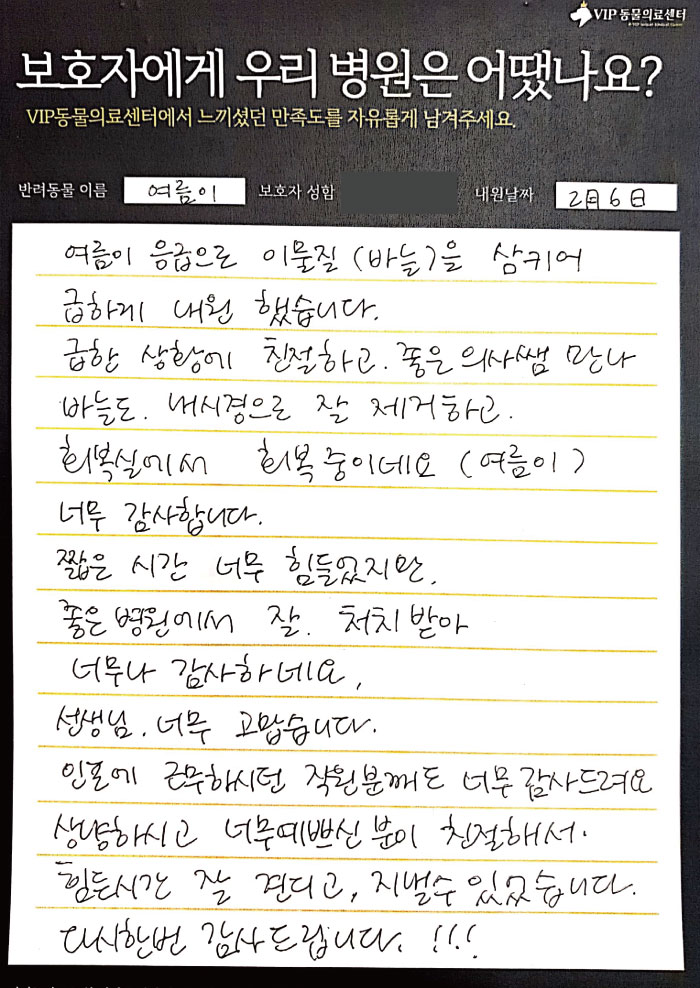 VIP 동물의료센터
보호자에게 우리 병원은 어땠나요?
VIP동물의료센터에서 느끼셨던 만족도를 자유롭게 남겨주세요.
반려동물 이름 여름이 보호자 성함 내원날짜 2月 6日
여름이 응급으로 이물질 (바늘)을 삼키어
급하게 내원 했습니다.
급한 상황에 친절하고. 좋은 의사쌤 만나
바늘도. 내시경으로 잘 제거하고.
회복실에서 회복 중이네요 (여름이)
너무 감사합니다.
짧은 시간 너무 힘들었지만,
좋은 병원에서 잘. 처치 받아
너무나 감사하네요,
선생님. 너무 고맙습니다.
인포에 근무하시던 직원분께도 너무 감사드려요
상냥하시고 너무예쁘신 분이 친절해서.
힘든시간 잘 견디고, 지낼수 있었습니다.
다시한번 감사드립니다. !!!